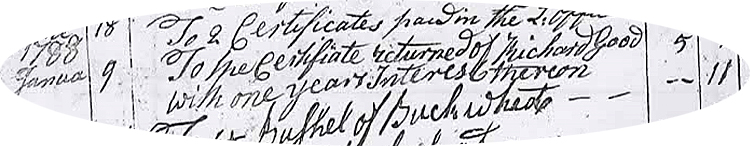 18 To 2 Certificates paid in the
1788
Janua 9 To the Certifiate returned of Richard Good 5
with one years Interest thereon -- 11
Bushel of Buckwheat - -